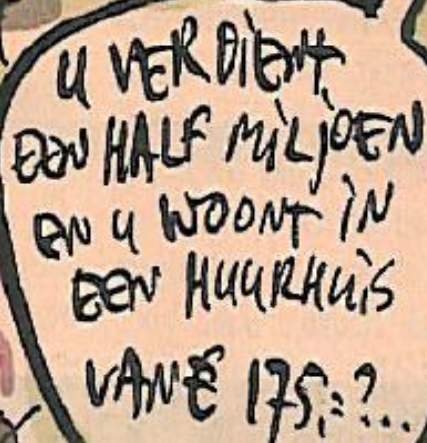 U VERDIENT
EEN HALF MILJOEN
EN U WOONT IN
EEN HUURHUIS
VAN € 175,=?...